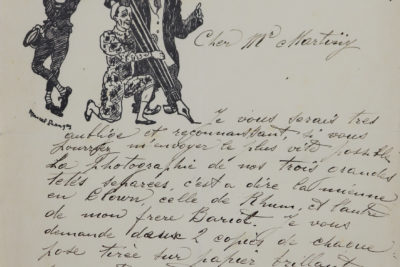 Cher Mr Martinij
Je vous serais tres
oubligé et reconnaissant, si vous
pourriez m'envoyer le plus vite possible
La Photographie de nos trois grandes
tetés separées, c'est a dire la mienne
en Clown, celle de Rhum, et l'autre
de mon frere Bariot. Je vous
demande deux 2 copies de chaque
pose tirée sur papier brillant